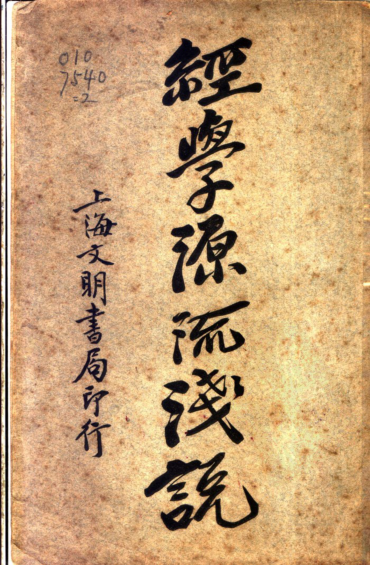 經學源流淺說
上海文明書局印行
010
7540
=2